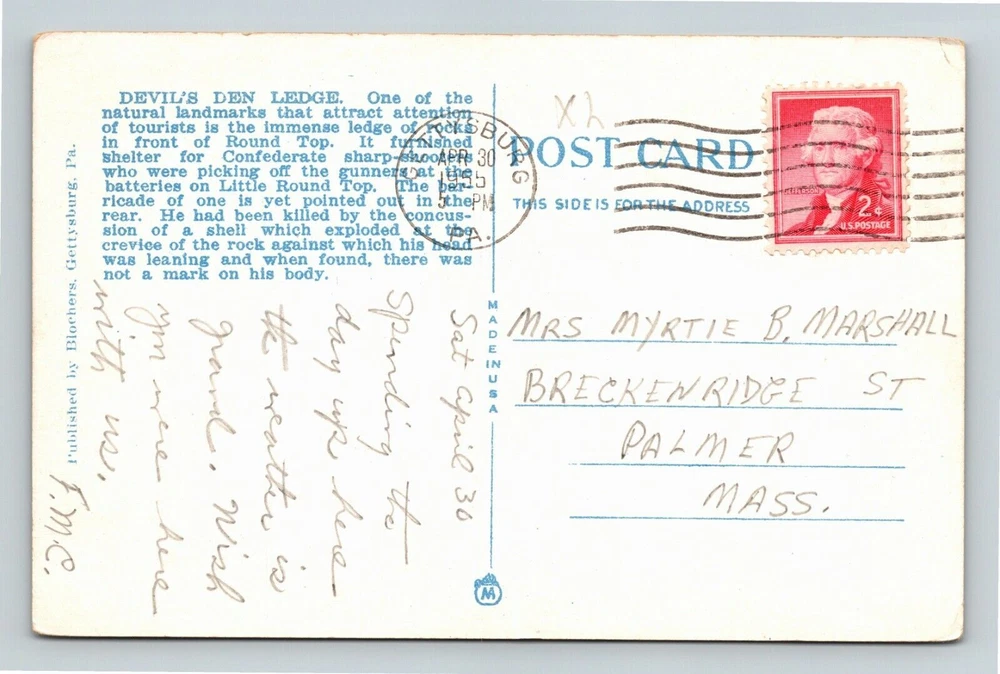 DEVIL'S DEN LEDGE. One of the
natural landmarks that attract attention
of tourists is the immense ledge of rocks
in front of Round Top. It furnished
shelter for Confederate sharp-shooters
who were picking off the gunners at the
batteries on Little Round Top. The bar-
ricade of one is yet pointed out in the
rear. He had been killed by the concus-
sion of a shell which exploded at the
crevice of the rock against which his head
was leaning and when found, there was
not a mark on his body.
Published by Blochers, Gettysburg, Pa.
Sat April 30
Spending the
day up here
the weather is
grand. Wish
you were here
with us.
F.M.C.
MADE IN USA
M
GETTYSBURG
APR 30
1955
5 - PM
PA.
X2
POST CARD
THIS SIDE IS FOR THE ADDRESS
JEFFERSON
2¢
U.S. POSTAGE
MRS MYRTIE B. MARSHALL
BRECKENRIDGE ST
PALMER
MASS.